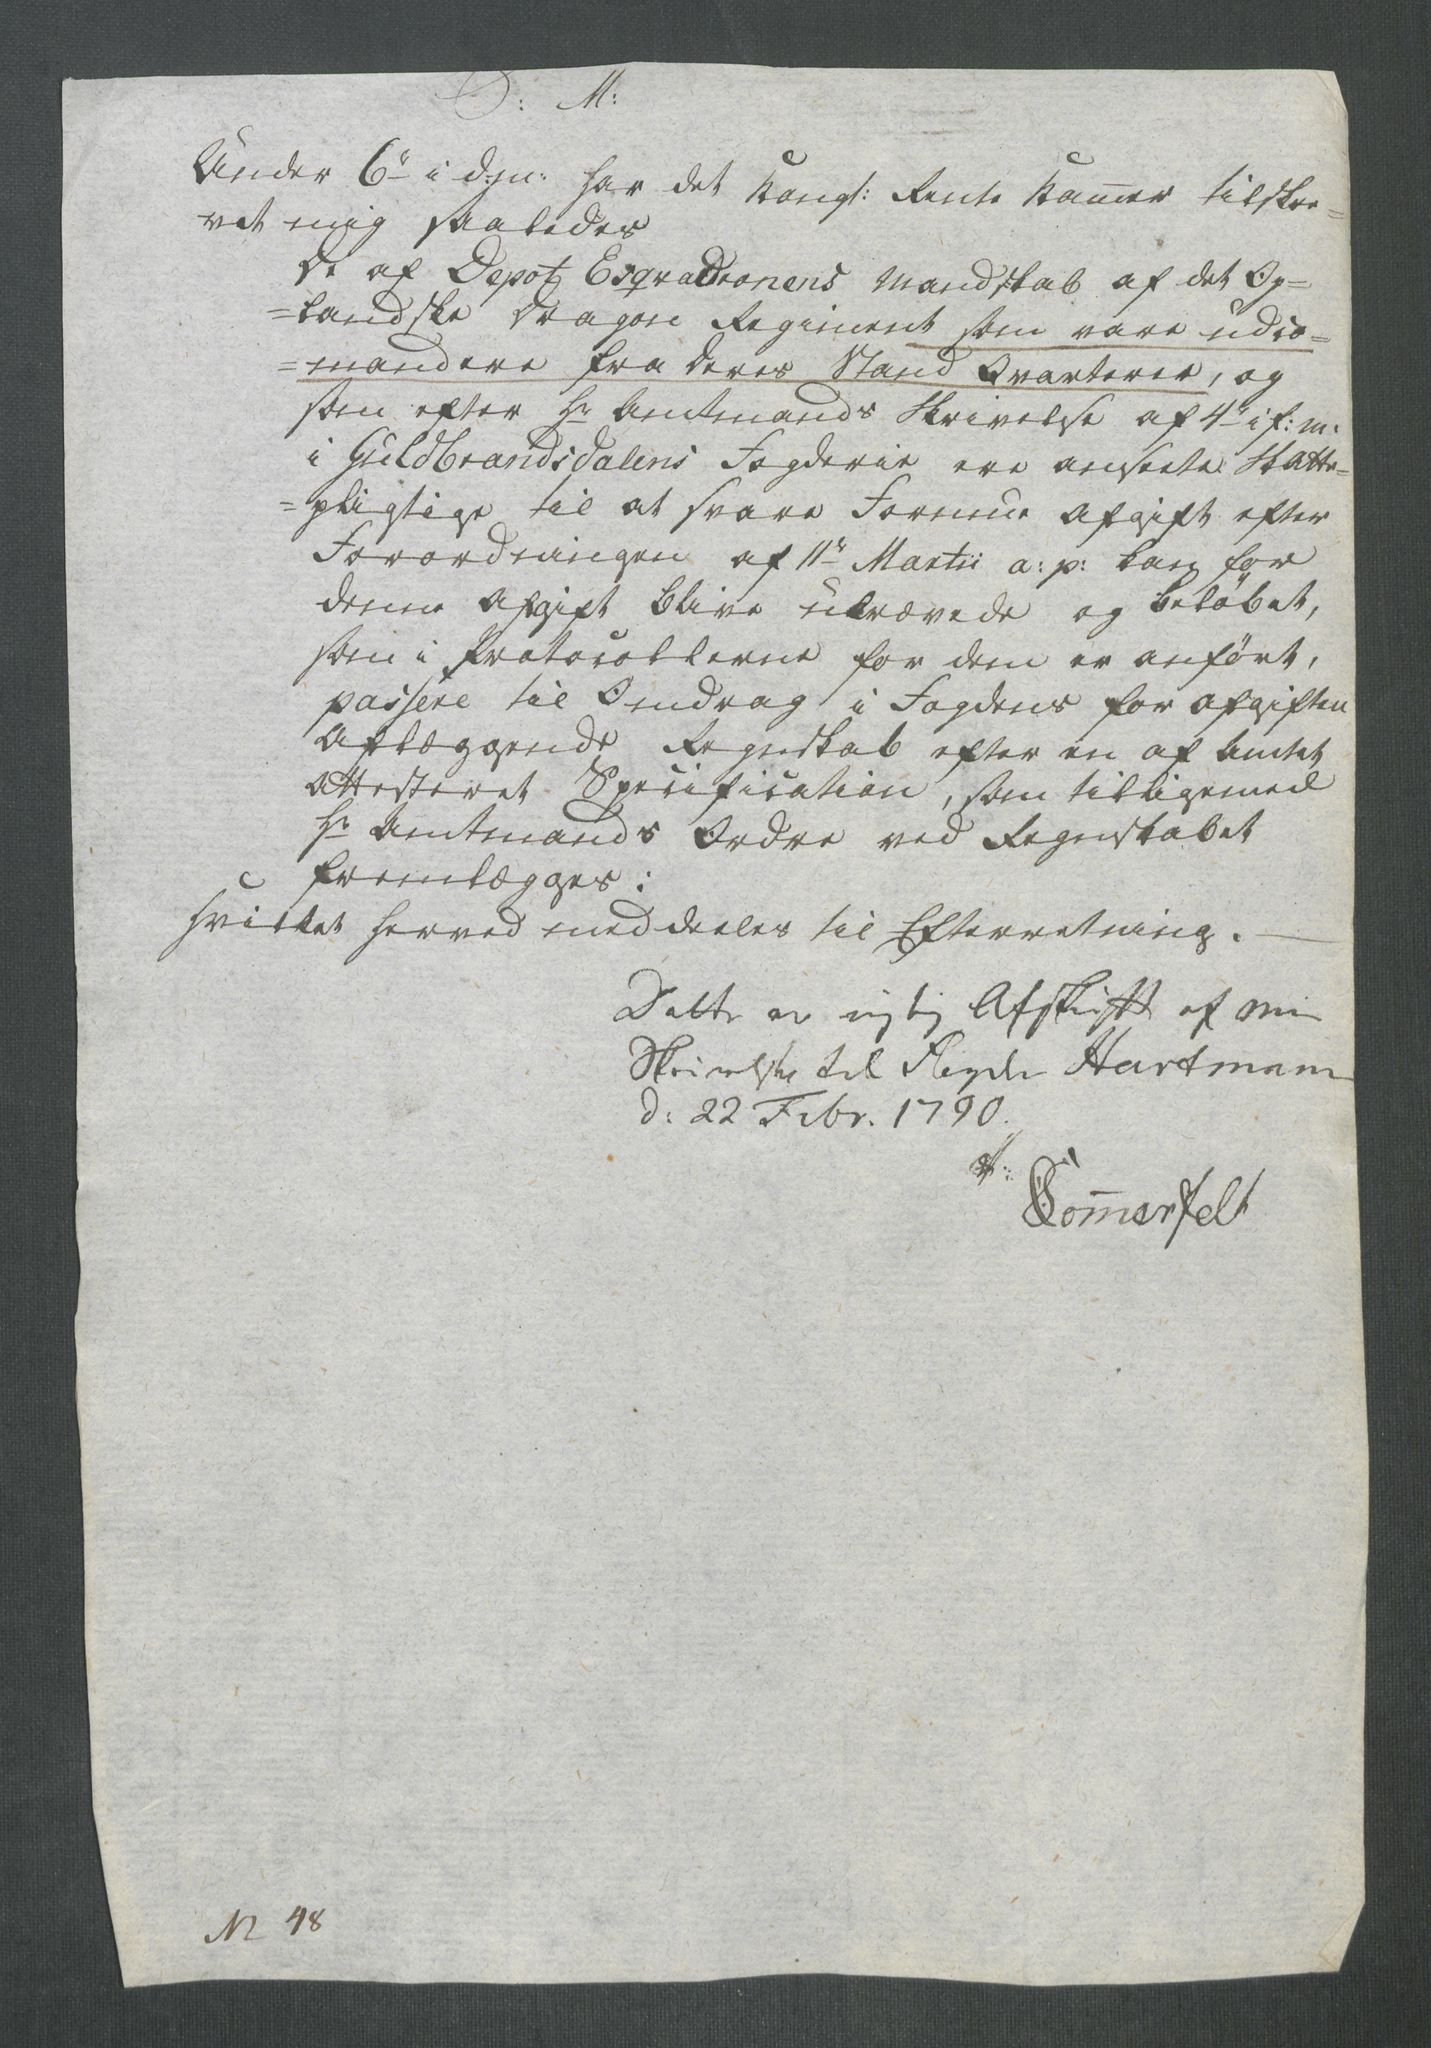 S: M:
Under 6te i d: m: har det Kongl: Rente Kam̅er tilskre=
vet mig saaledes
De af Depot Esqvadronens Mandskab af det Op=
=landske Dragon Regiment som vare udco=
=mandere fra deres Stand Qvarterer, og
som efter Hr Amtmands Skrivelse af 4de i f: m:
i Guldbrandsdalens Fogderie ere ansette Skatte=
=pligtige til at svare Formue Afgift efter
Forordningen af 11te Martii a: p: kan for
denne Afgift blive ukrævede og beløbet,
som i Protocollerne for dem er anført,
passere til Omdrag i Fogdens for afgiften
Aflæggende Regnskab efter en af Amtet
attesteret Specification, som tilligemed
Hr Amtmands Ordre ved Regnskabet
fremlægges:
hvilket herved meddeeles til Efterretning.
Dette er rigtig Afskrift af min
Skrivelse til Foged Hartmann
d: 22 Febr. 1790.
Som̅erfelt
N 48